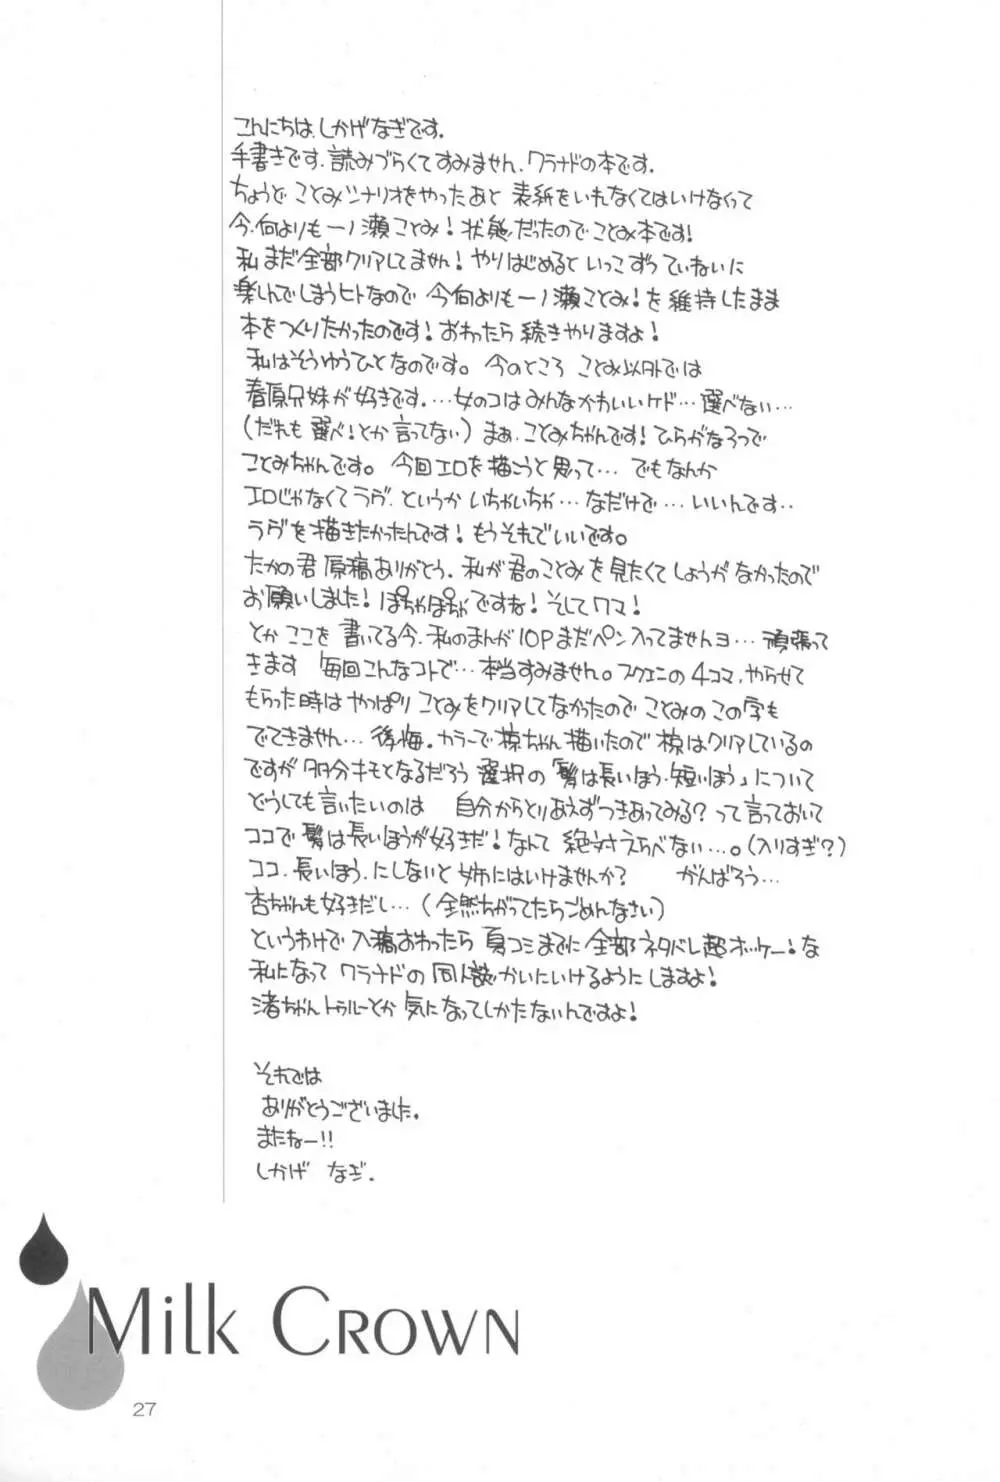 こんにちは、しかげなぎです.
手書きです.読みづらくてすみません.クラナドの本です.
ちょうど ことみシナリオをやったあと 表紙をいれなくてはいけなくって
今.何よりも一ノ瀬ことみ!状態だったので ことみ本です!
私 まだ全部クリアしてません! やりはじめると いっこずつていねいに
楽しんでしまうヒトなので 今何よりも一ノ瀬ことみ!を維持したまま
本をつくりたかったのです! おわったら続きやりますよ!
私はそうゆうひとなのです。 今のところ ことみ以外では
春原兄妹が好きです.…女のコはみんなかわいいケド…選べない…
(だれも選べ!とか言ってない) まぁ.ことみちゃんです!ひらがなみっつで
ことみちゃんです。 今回エロを描こうと思って… でもなんか
エロじゃなくてラヴ.というか いちゃいちゃ…なだけで…いいんです..
ラヴを描きたかったんです! もうそれでいいです。
たかの君 原稿ありがとう.私が君のことみを見たくてしょうがなかったので
お願いしました! ぽちゃぽちゃですね! そしてクマ!
とか ここを書いてる今.私のまんが10Pまだペン入ってませんヨ…頑張って
きます 毎回こんなコトで…本当すみません。スクエニの4コマ、やらせて
もらった時は やっぱり ことみをクリアしてなかったので ことみのこの字も
でてきません… 後悔.カラーで椋ちゃん描いたので 椋はクリアしているの
ですが 多分キモとなるだろう 選択の「髪は長いほう・短いほう」について
どうしても言いたいのは 自分からとりあえずつきあってみる? って言っておいて
ココで髪は長いほうが好きだ!なんて 絶対えらべない…。(入りすぎ?)
ココ.長いほう.にしないと 姉にはいけませんか? がんばろう…
杏ちゃんも好きだし…(全然ちがってたらごめんなさい)
というわけで 入稿おわったら 夏コミまでに 全部ネタバレ超オッケー!な
私になって クラナドの同人誌かいにいけるようにしますよ!
渚ちゃん トゥルーとか 気になってしかたないんですよ!
それでは
ありがとうございました.
またねー!!
しかげ なぎ.
Milk CROWN
27